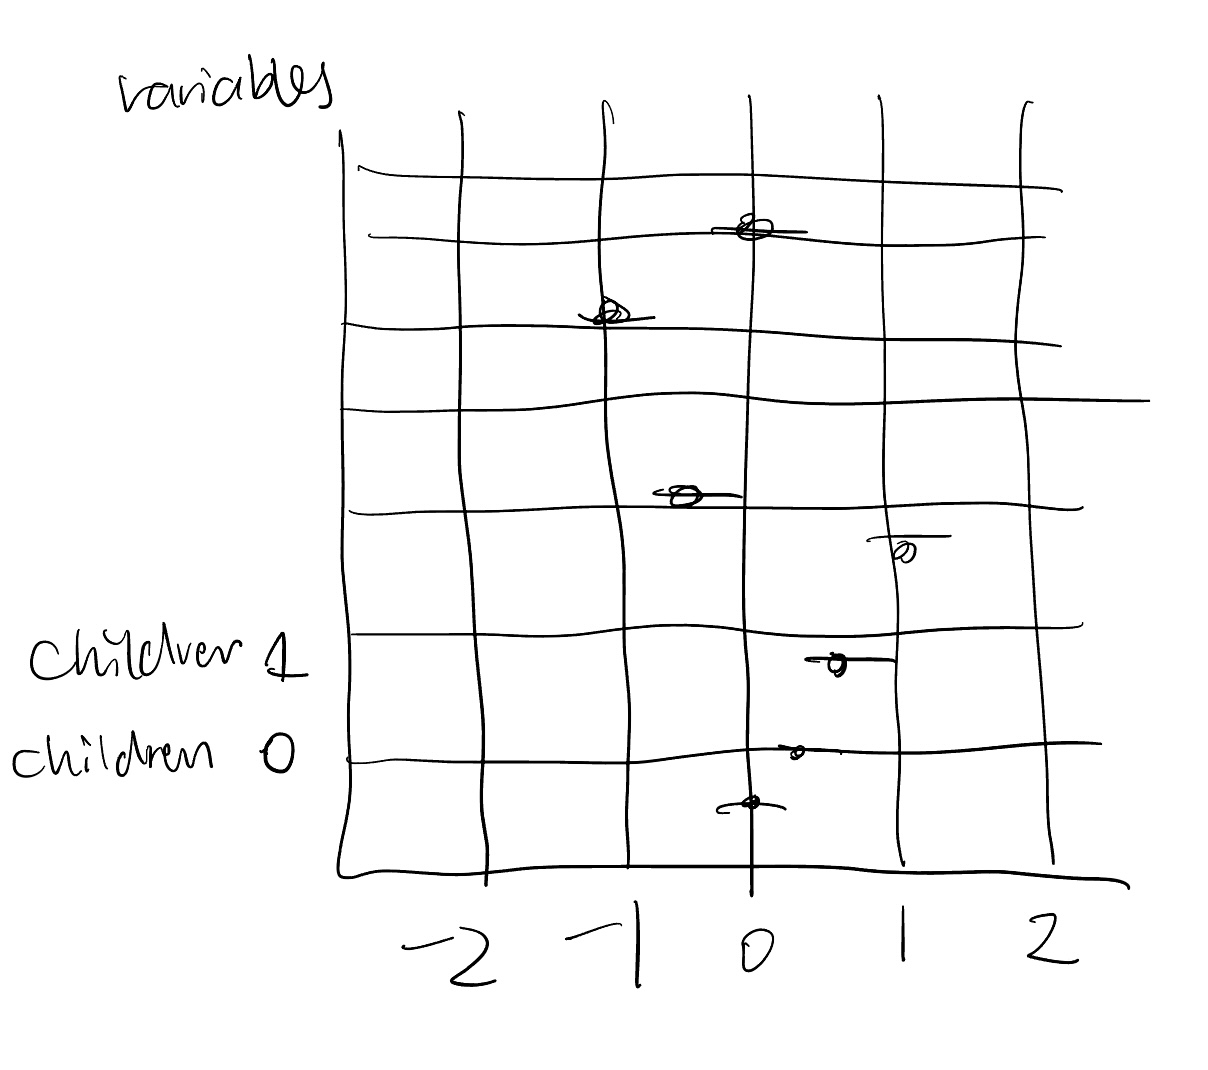 variables
children 1
children 0
-2 -1 0 1 2